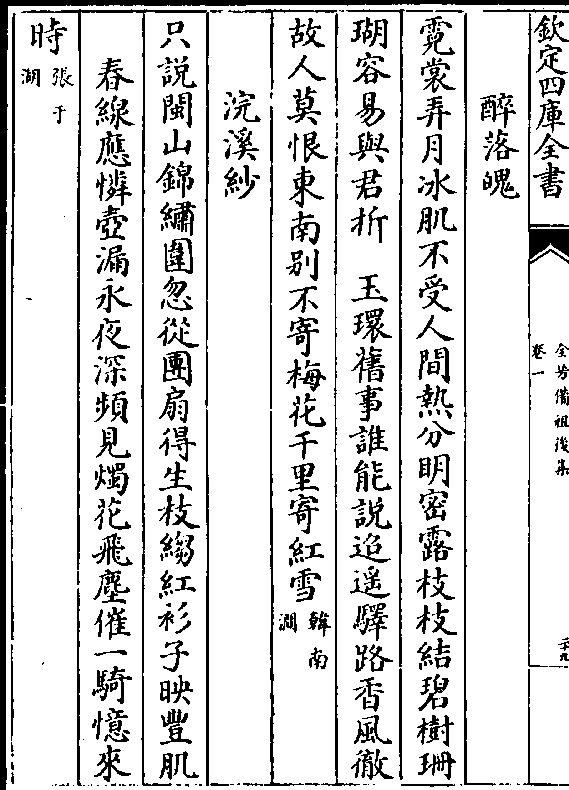 欽定四庫全書
全芳備祖後集
卷一
二十九
醉落魄
霓裳弄月冰肌不受人間熱分明密露枝枝結碧樹珊
瑚容易與君折　玉環舊事誰能說迢遥驛路香風徹
故人莫恨東南别不寄梅花千里寄紅雪韓南
澗
浣溪紗
只説閩山錦繡圍忽從團扇得生枝縐紅衫子映豐肌
春線應憐壺漏永夜深頻見燭花飛塵催一騎憶來
時張于
湖